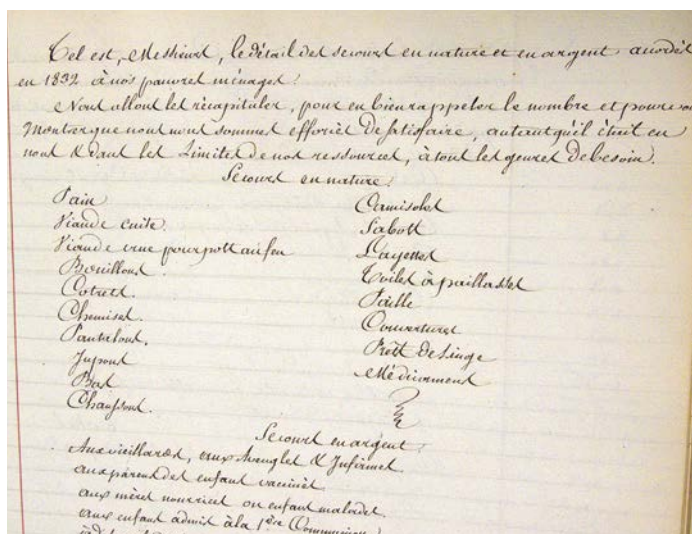 Tel est, Messieurs, le détail des secours en nature et en argent accordés
en 1832 à nos pauvres ménages.
Nous allons les récapituler, pour en bien rappeler le nombre et pour
montrer que nous nous sommes efforcés de satisfaire, autant qu'il était en
nous & dans les limites de nos ressources, à tous les genres de besoin.
Secours en nature.
Pain
Viande cuite.
Viande crue pour pott au feu
Bouillons.
Cotrets.
Chemises.
Pantalons.
Jupons
Bas
Chaussons.
Camisoles
Sabots
Layettes
Toiles à paillasses
Paille
Couvertures
Prêts de Linge
Médicaments
Secours en argent.
Aux vieillards, aux Aveugles & Infirmes
aux parens des enfans vaccinés
aux mères nourrices ou enfans malades.
aux enfans admis à la 1ère Communion